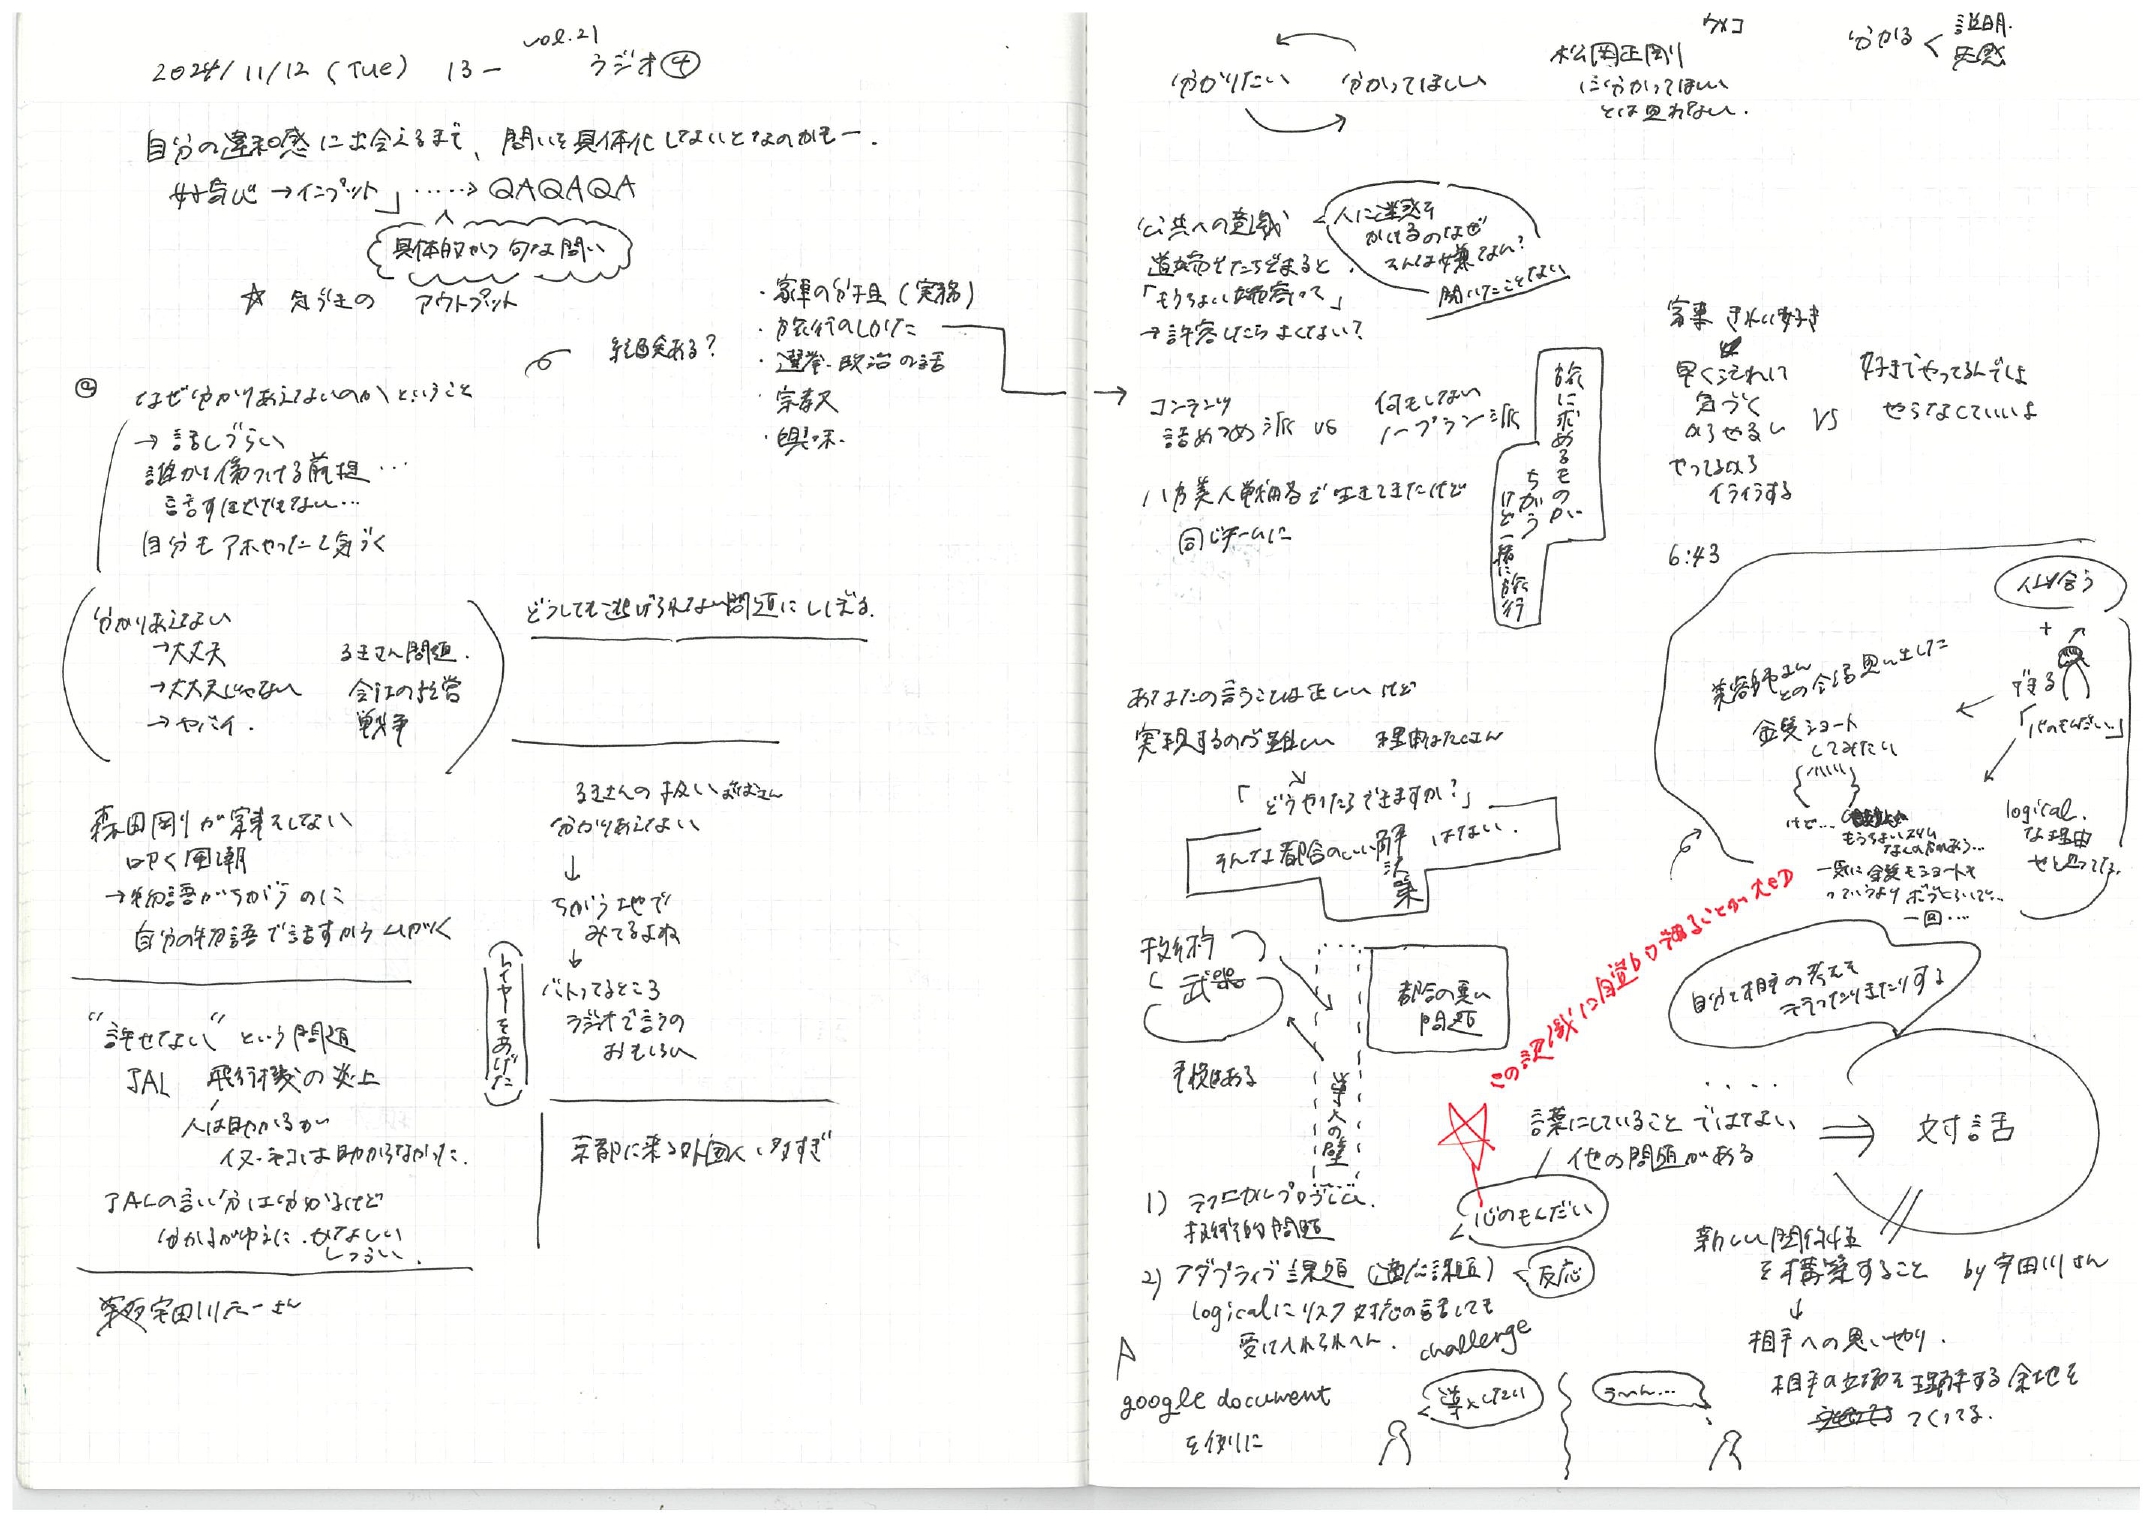 vol.21
2024/11/12 (Tue) 13- ラジオ④
自分の違和感に出会えるまで、問いを具体化しないとなのかもー.
好奇心 →インプット 」 ‥‥→ QAQAQA
具体的かつ旬な問い
☆ 気づきの アウトプット
経験ある?
・家事の分担 (実務)
・旅行のしかた
・選挙・政治の話
・宗教
・興味.
なぜ分かりあえないのか ということ
→ 話しづらい
誰かを傷つける前提…
話すほどでもない…
自分もアホやったと気づく
分かりあえない
→大丈夫
→大丈夫じゃない
→ヤバイ.
るまさん問題.
会社の経営
戦争
どうしても逃げられない問題にしぼる.
森田剛が家事をしない
叩く風潮
→物語がちがうのに
自分の物語で話すから
"許せない" という問題
JAL 飛行機の炎上
人は助かるが
イヌ・ネコは助からなかった.
JALの言い分は分かるけど
分かるがゆえに、かなしい
しづらい.
宇田川元一さん
るまさんの扱い おばさん
分かりあえない
↓
ちがう土地で
みてるよね
↓
バトってるところ
ラジオで言うの
おもしろい
レイヤーをあげた
京都に来る外国人 多すぎ
分かりたい 分かってほしい
ウメコ
松岡正剛
に分かってほしい
とは思わない.
分かる < 説明.
共感
公共への意識
道端で立ちどまると.
「もうちょい端寄って」
→許容したらよくない?
人に迷惑を
かけるのなぜ
そんな嫌なん?
聞いたことない
コンテンツ
詰めつめ派 vs 何もしない
ノープラン派
旅に求めるものが
ちがう
けど一緒に旅行
八方美人戦略で生きてきたけど
同じチームに
家事 きれい好き
早く汚れに
気づく
からやるし
やってるから
イライラする
VS
好きでやってるんでしょ
やらなくていいよ
6:43
似合う
+
できる
「心のもんだい…」
美容師さん
との会話思い出した
金髪ショート
してみたい
けど…
もうちょい
一気に金髪もショートも
っていうより ボブくらいで…
一回…
logical.
な理由
あなたの言うことは正しいけど
実現するのが難しい 理由はたくさん
「どうやったらできますか?」
そんな都合のいい解決策 はない.
技術
武器
手段はある
導入の壁
都合の悪い
問題
この認識に自覚的になることが大切
自分と相手の考えを
行ったりきたりする
‥‥
言葉にしていること ではない
他の問題がある
⇒ 対話
心のもんだい
1) テクニカルプロブレム.
技術的問題
2) アダプティブ課題 (適応課題) 反応
logicalにリスク対応の話しても
受け入れられへん. challenge
google document
を例に
導入したい
う〜ん…
新しい関係性
を構築すること by宇田川さん
↓
相手への思いやり.
相手の立場を理解する余地を
つくってる.